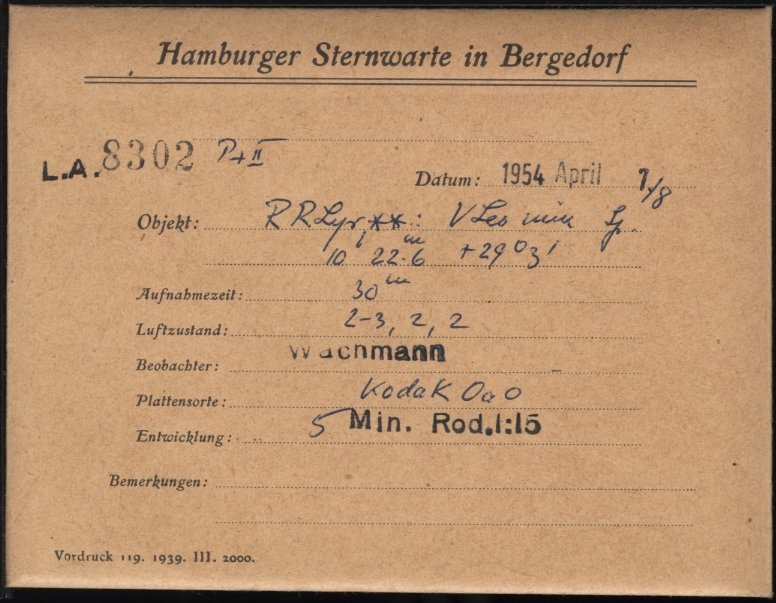 Hamburger Sternwarte in Bergedorf
L.A. 8302 P+II
Datum: 1954 April 7/8
Objekt: RR Lyr, **: V Leo min
10 22.6 m +29° 3'
Aufnahmezeit: 30 m
Luftzustand: 2-3, 2, 2
Beobachter: Wachmann
Plattensorte: Kodak OaO
Entwicklung: 5 Min. Rod.1:15
Bemerkungen:
Vordruck 119. 1939. III. 2000.